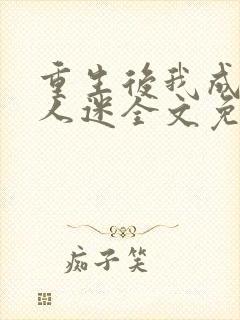 重生後我成
人迷全文免
痴子笑